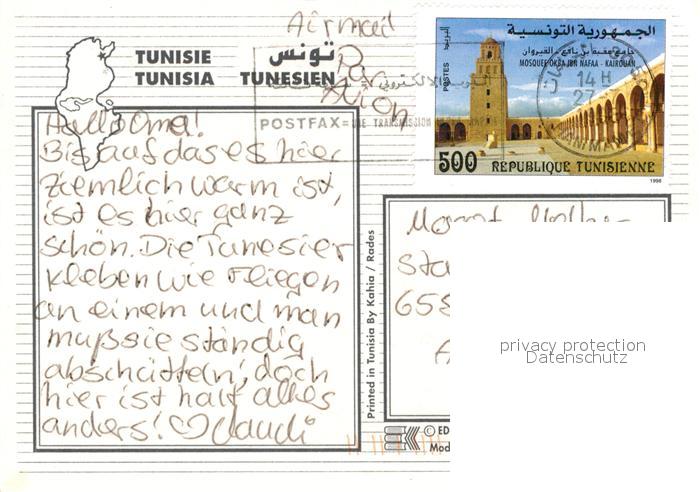 Airmail
Par
Avion
TUNISIE تونس
TUNISIA TUNESIEN
POSTFAX=
الجمهورية التونسية
جامع عقبة بن نافع - القيروان
MOSQUEE OKBA IBN NAFAA - KAIROUAN
POSTES
البريد
14 H
27
500 REPUBLIQUE TUNISIENNE
1998
Hallo Oma!
Bis auf das es hier
ziemlich warm ist,
ist es hier ganz
schön. Die Tunesier
kleben wie Fliegen
an einem und man
muß sie ständig
abschütteln, doch
hier ist halt alles
anders! ♡ Claudi
Printed in Tunisia By Kahia / Rades
Sta
655
A
© ED
Mod
privacy protection
Datenschutz